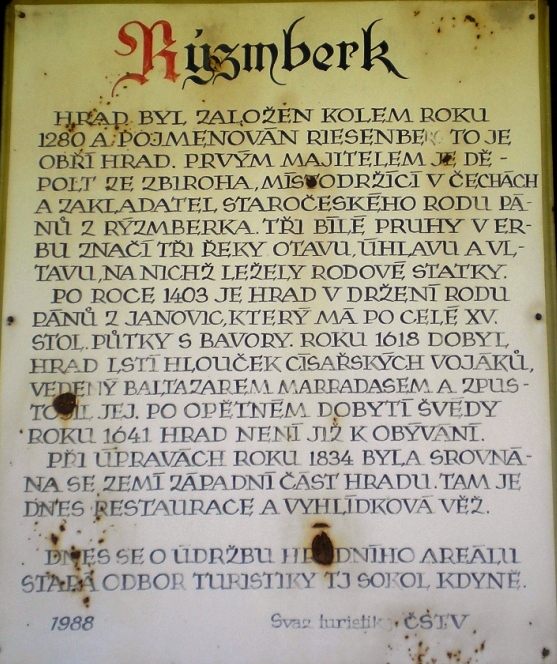 Rýzmberk
HRAD BYL ZALOŽEN KOLEM ROKU
1280 A POJMENOVÁN RIESENBERK TO JE
OBŘÍ HRAD. PRVÝM MAJITELEM JE DĚ-
POLT ZE ZBIROHA, MÍSTODRŽÍCÍ V ČECHÁCH
A ZAKLADATEL STAROČESKÉHO RODU PÁ-
NŮ Z RÝZMBERKA. TŘI BÍLÉ PRUHY V ER-
BU ZNAČÍ TŘI ŘEKY OTAVU, ÚHLAVU A VL-
TAVU, NA NICHŽ LEŽELY RODOVÉ STATKY.
PO ROCE 1403 JE HRAD V DRŽENÍ RODU
PÁNŮ Z JANOVIC, KTERÝ MÁ PO CELÉ XV.
STOL. PŮTKY S BAVORY. ROKU 1618 DOBYL
HRAD LSTÍ HLOUČEK CÍSAŘSKÝCH VOJÁKŮ,
VEDENÝ BALTAZAREM MARRADASEM A ZPUS-
TOŠIL JEJ. PO OPĚTNÉM DOBYTÍ ŠVÉDY
ROKU 1641 HRAD NENÍ JIŽ K OBÝVÁNÍ.
PŘI ÚPRAVÁCH ROKU 1834 BYLA SROVNÁ-
NA SE ZEMÍ ZÁPADNÍ ČÁST HRADU. TAM JE
DNES RESTAURACE A VYHLÍDKOVÁ VĚŽ.
DNES SE O ÚDRŽBU HRADNÍHO AREÁLU
STARÁ ODBOR TURISTIKY TJ SOKOL KDYNĚ.
1988 Svaz turistiky ČSTV